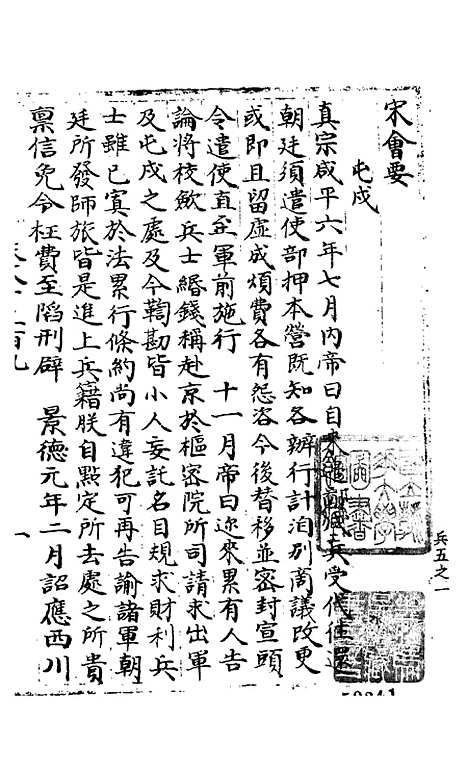 宋會要
屯戍
真宗咸平六年七月內帝曰自來兵受代往還
朝廷須遣使部押本營旣知各辦行計洎別商議改更
或卽且留虛成煩費各有怨咨今後替移並密封宣頭
令遣使直至軍前施行　十一月帝曰邇來累有人告
論將校歛兵士緡錢稱赴京於樞密院所司請求出軍
及屯戍之處及令鞫勘皆小人妄託名目規求財利兵
士雖已寘於法累行條約尚有違犯可再告諭諸軍朝
廷所發師旅皆是進上兵籍朕自點定所去處之所貴
稟信免令枉費至陷刑辟　景德元年二月詔應西川
兵五之一
一